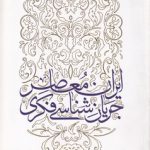 ایران معاصر
جریان‌شناسی فکری